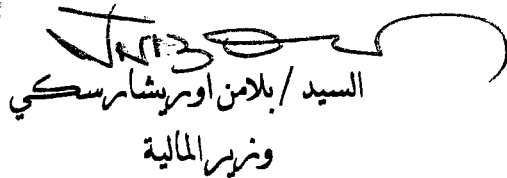 السيد / بلامن اوريشارسكي
وزير المالية